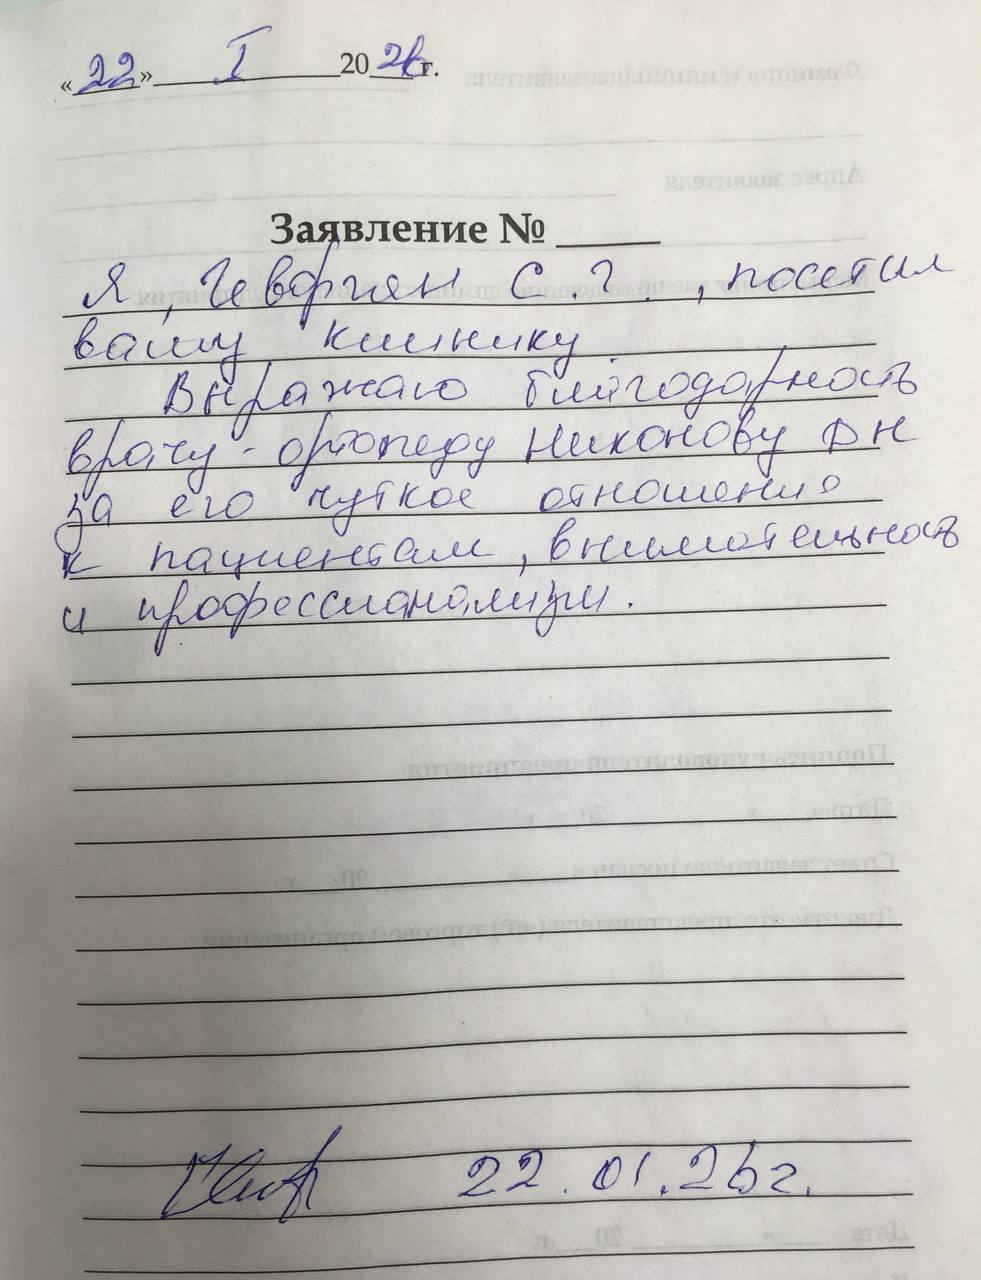 «22» I 2026 г.
Заявление № ____
Я, Геворгян С.Г., посетил
вашу клинику.
Выражаю благодарность
врачу-ортопеду Никонову ДН
за его чуткое отношение
к пациентам, внимательность
и профессионализм.
22.01.26г.